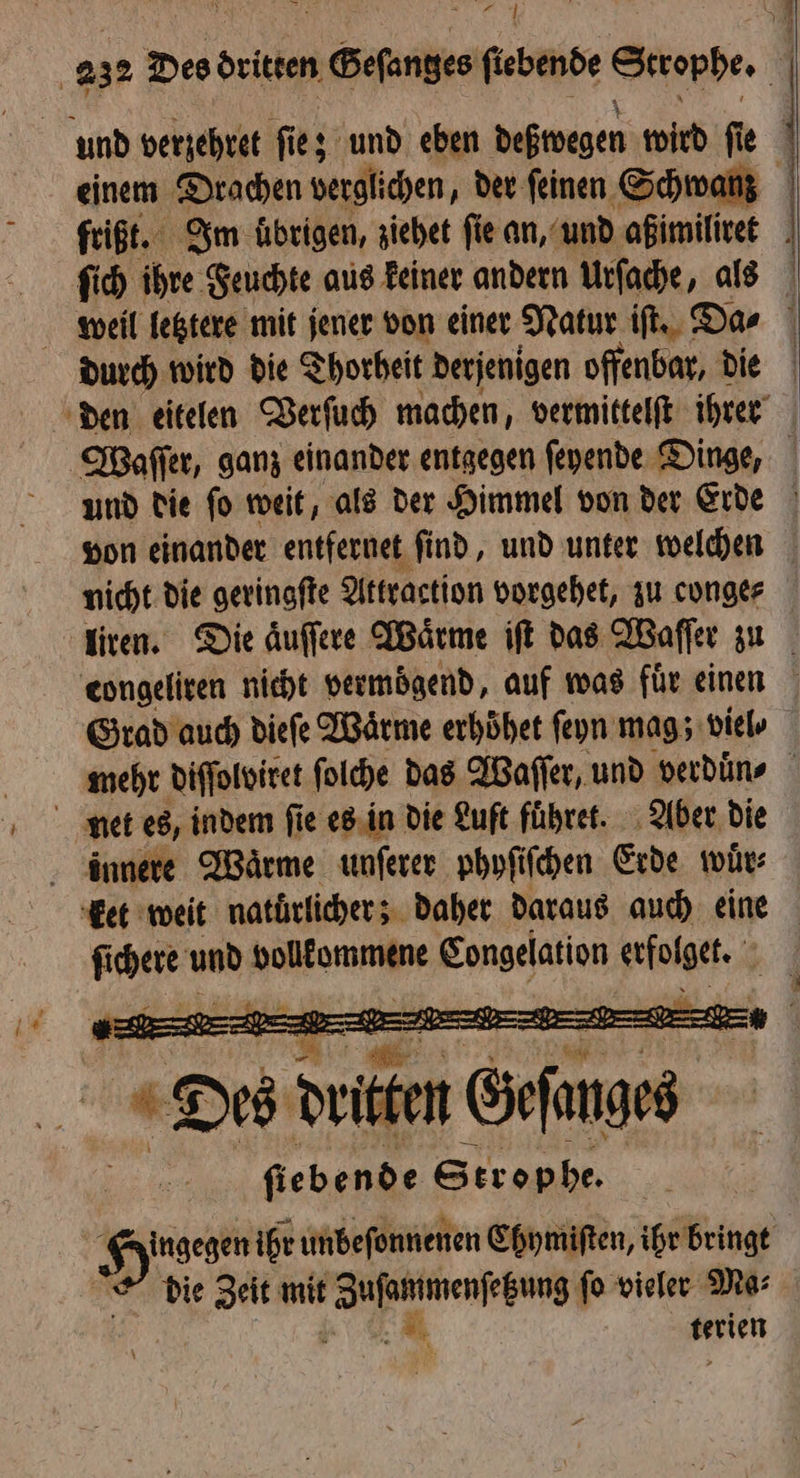 232 Des dritten Geſantzes ſiebende Strophe.
und verzehret ſie; und eben deßwegen wird ſie
einem Drachen verglichen, der ſeinen Schwanz
frißt. Im uͤbrigen, ziehet ſie an, und aßimiliret
ſich ihre Feuchte aus keiner andern Urſache, als
weil letztere mit jener von einer Natur iſt. Da⸗
durch wird die Thorheit derjenigen offenbar, die
den eitelen Verſuch machen, vermittelſt ihrer
Waſſer, ganz einander entgegen ſeyende Dinge,
und die ſo weit, als der Himmel von der Erde
von einander entfernet ſind, und unter welchen
nicht die geringſte Attraction vorgehet, zu conge⸗
liren. Die aͤuſſere Waͤrme iſt das Waſſer zu
congeliren nicht vermoͤgend, auf was fuͤr einen
Grad auch dieſe Waͤrme erhoͤhet ſeyn mag; viel⸗
mehr diſſolviret ſolche das Waſſer, und verduͤn⸗
net es, indem ſie es in die Luft fuͤhret. Aber die
innere Waͤrme unſerer phyſiſchen Erde wuͤr⸗
ket weit natuͤrlicher; daher daraus auch eine
ſichere und vollkommene Congelation erfolget.
Des dritten Geſanges
ſiebende Strophe.
Hingegen ihr unbeſonnenen Chymiſten, ihr bringt
die Zeit mit Zuſammenſetzung ſo vieler Ma⸗
terien